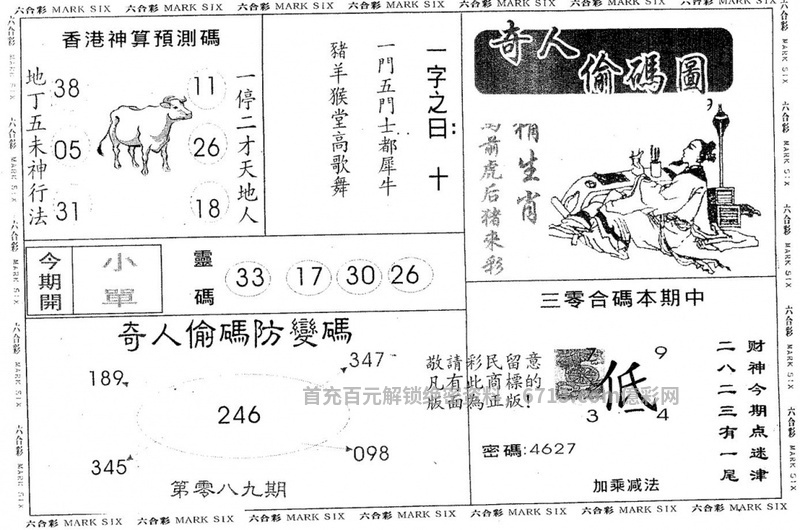 六合彩 MARK SIX 六合彩 MARK SIX 六合彩 MARK SIX 六合彩 MARK SIX 六合彩 MARK SIX 六合彩 MARK SIX 六合彩 MARK SIX
香港神算預測碼
地丁五未神行法
38
05
31
11
26
18
一停二才天地人
一字之曰: 十
一門五門士都犀牛
豬羊猴堂高歌舞
奇人
偷碼圖
生肖
前虎后猪來彩
今期開
小單
靈碼
33 17 30 26
奇人偷碼防變碼
189
347
246
345
098
第零八九期
敬請彩民留意
凡有此商標的
版面為正版!
三零合碼本期中
7 9
低
3 4
密碼:4627
财神今期点迷津
二八二三有一尾
加乘减法
六合彩 MARK SIX 六合彩 MARK SIX 六合彩 MARK SIX 六合彩 MARK SIX 六合彩 MARK SIX 六合彩 MARK SIX 六合彩 MARK SIX